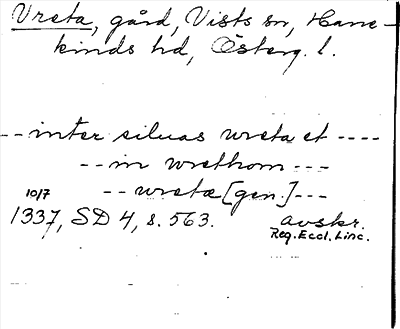 Vreta, gård, Vists sn, Hane-
kinds hd, Österg. l.
-- inter siluas wreta et ----
-- in wrethom ---
-- wretæ [gen.] ---
10/7
1337, SD 4, s. 563. avskr.
Reg. Eccl. Linc.